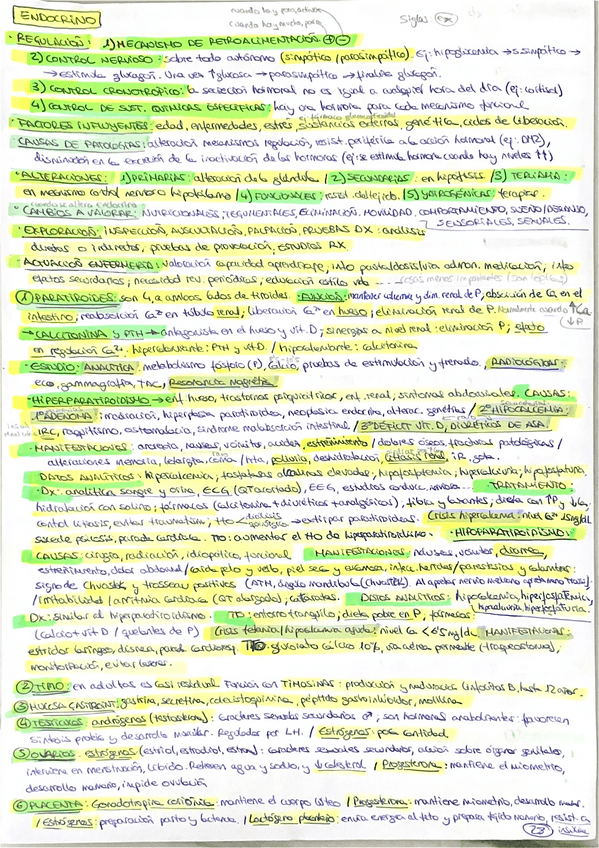 ENDOCRINO
cuando hay poco, activas
cuando hay mucho, paras
Siglas: ex
· REGULACIÓN: 1) MECANISMO DE RETROALIMENTACIÓN + -
2) CONTROL NERVIOSO: sobre todo autónomo (simpático/parasimpático). Ej: hipoglucemia → s.simpático →
→ estimula glucagón. Una vez ↑glucosa → parasimpático → finaliza glucagón.
3) CONTROL CRONOTRÓPICO: la secreción hormonal no es igual a cualquier hora del día (ej: cortisol)
4) CONTROL DE SUST. QUIMICAS ESPECÍFICAS: hay una hormona para cada mecanismo funcional
· FACTORES INFLUYENTES: edad, enfermedades, estrés, sustancias externas, genética, ciclos de liberación.
CAUSAS DE PATOLOGÍAS: alteración mecanismos regulación, resist. periférica a la acción hormonal (ej: DM2),
disminución en la excreción de la inactivación de las hormonas (ej: se estimula hormona cuando hay niveles ↑↑)
· ALTERACIONES: 1) PRIMARIAS: alteración de la glándula / 2) SECUNDARIAS: en hipófisis / 3) TERCIARIA:
en mecanismo control nervioso hipotálamo / 4) FUNCIONALES: resist. del tejido. / 5) YATROGÉNICAS: terapias.
· CAMBIOS A VALORAR: NUTRICIONALES, TEGUMENTALES, ELIMINACIÓN, MOVILIDAD, COMPORTAMIENTO, SUEÑO/DESCANSO,
SENSORIALES, SEXUALES.
· EXPLORACIÓN: INSPECCIÓN, AUSCULTACIÓN, PALPACIÓN, PRUEBAS DX: análisis
directas o indirectos, pruebas de provocación, estudios RX
· ACTUACIÓN ENFERMERÍA: valoración capacidad aprendizaje, info pauta/dosis/vía admon. medicación, info
efectos secundarios, necesidad rev. periódicas, educación estilo vida
① PARATIROIDES: son 4, a ambos lados de tiroides. FUNCIÓN: mantener calcemia y dism. renal de P, absorción de Ca, en el
intestino; reabsorción Ca²⁺ en túbulo renal; liberación Ca²⁺ en hueso; eliminación renal de P. Normalmente cuando ↑Ca
↓P
→ CALCITONINA y PTH → antagonista en el hueso y vit. D; sinergias a nivel renal: eliminación P; efecto
en regulación Ca²⁺. hipercalcemiante: PTH y vit. D / hipocalcemiante: calcitonina
· ESTUDIO: ANALÍTICA: metabolismo fósforo (P), calcio, pruebas de estimulación y frenado, RADIOLÓGICAS:
eco, gammagrafía, TAC, Resonancia magnética
· HIPERPARATIROIDISMO → enf. hueso, trastornos psiquiátricos, enf. renal, síntomas abdominales. CAUSAS:
1º ADENOMA: irradiación, hiperplasia paratiroidea, neoplasia endocrina, alterac. genética / 2º HIPOCALCEMIA:
IRC, raquitismo, osteomalacia, síndrome malabsorción intestinal / 3º DÉFICIT VIT. D, DIURÉTICOS DE ASA.
· MANIFESTACIONES: anorexia, náuseas, vómitos, acidez, estreñimiento / dolores óseos, fracturas patológicas /
alteraciones memoria, letargia, coma / hta, poliuria, deshidratación, litiasis renal, IR, gota.
DATOS ANALÍTICOS: hipercalcemia, fosfatasas alcalinas elevadas, hipofosfatemia, hipercalciuria, hipofosfaturia
· Dx: analítica sangre y orina, ECG (QT acortado), EEG, estudios conduc. nerviosa. TRATAMIENTO:
hidratación con salino, fármacos (calcitonina + diuréticos + analgésicos), fibra y laxantes, dieta con ↑P y ↓Ca,
control litiasis, evitar traumatism.; tto → extirpar paratiroides. Crisis hipercalcemia: nivel Ca²⁺ 15mg/dl
sucede psicosis, parada cardiaca. TTO: aumentar el tto de hiperparatiroidismo. · HIPOPARATIROIDISMO:
CAUSAS: cirugía, radiación, idiopático, funcional MANIFESTACIONES: náuseas, vómitos, diarreas,
estreñimiento, dolor abdom / caída pelo y vello, piel seca y escamosa, infecc. heridas / parestesias y calambres:
signo de Chvostek y Trosseau positivos (ATM, ángulo mandíbula (Chvostek). Al apretar nervio mediano
/ irritabilidad / arritmia cardiaca (QT alargado), cataratas. DATOS ANALÍTICOS: hipocalcemia, hiperfosfatemia,
hipocalciuria, hipofosfaturia.
Dx: similar al hiperparatiroidismo. TTO: entorno tranquilo, dieta pobre en P, fármacos:
(calcio + vit D / quelantes de P) Crisis tetania/hipocalcemia aguda: nivel Ca < 6'5 mg/dl. MANIFESTACIONES:
estridor laringeo, disnea, parad. cardioresp. TTO: gluconato cálcico 10%, vía aérea permeable (traqueostomía),
monitorización, evitar lesiones.
② TIMO: en adultos es casi residual. Función con TIMOSINAS: producción y maduración linfocitos B, hasta 12 años.
③ MUCOSA GASTROINT: gastrina, secretina, colecistoquinina, péptido gastroinhibidor, motilina
④ TESTÍCULOS: andrógenos (testosterona): caracteres sexuales secundarios ♂, son hormonas anabolizantes: favorecen
síntesis proteica y desarrollo muscular. Regulados por LH. / Estrógenos: poca cantidad
⑤ OVARIOS: estrógenos (estriol, estradiol, estrona): caracteres sexuales secundarios, acción sobre órganos genitales,
interviene en menstruación, libido. Retienen agua y sodio, y ↓colesterol / Progesterona: mantiene el miometrio,
desarrollo mamario, impide ovulación
⑥ PLACENTA: Gonadotropina coriónica: mantiene el cuerpo lúteo / Progesterona: mantiene miometrio, desarrollo mamar.
/ Estrógenos: preparación parto y lactancia. / Lactógeno placentario: envía energía al feto y prepara tejido mamario, resist. a
insulina
23